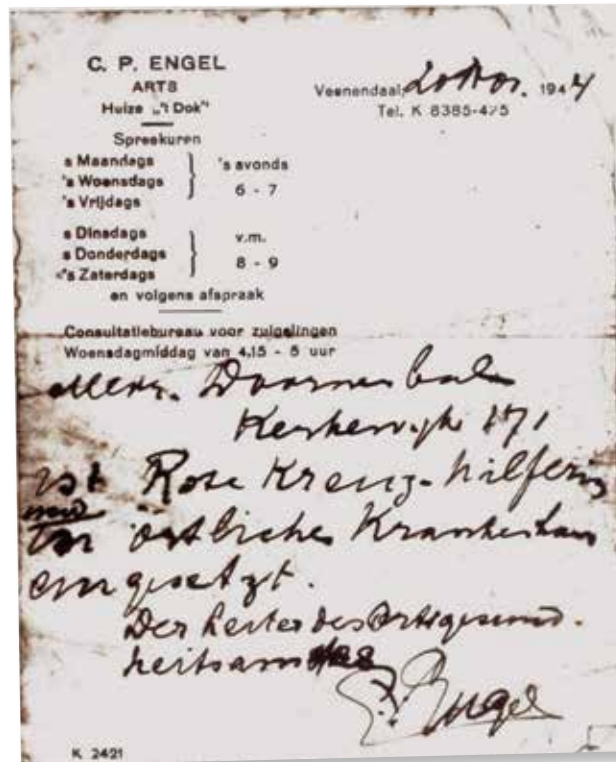 C. P. ENGEL
ARTS
Huize „'t Dok"
Veenendaal, 20 Nov. 1944
Tel. K 8385-475
Spreekuren
's Maandags
's Woensdags
's Vrijdags
's avonds
6 - 7
's Dinsdags
's Donderdags
's Zaterdags
v.m.
8 - 9
en volgens afspraak
Consultatiebureau voor zuigelingen
Woensdagmiddag van 4.15 - 5 uur
Mevr. Doornenbal
Kerkewijk 171
ist Rose Kreuz-hilferin
und
im örtliches Krankenhaus
eingesetzt.
Der Leiter des Ortsgesund-
heitsamtes
Engel
K 2421